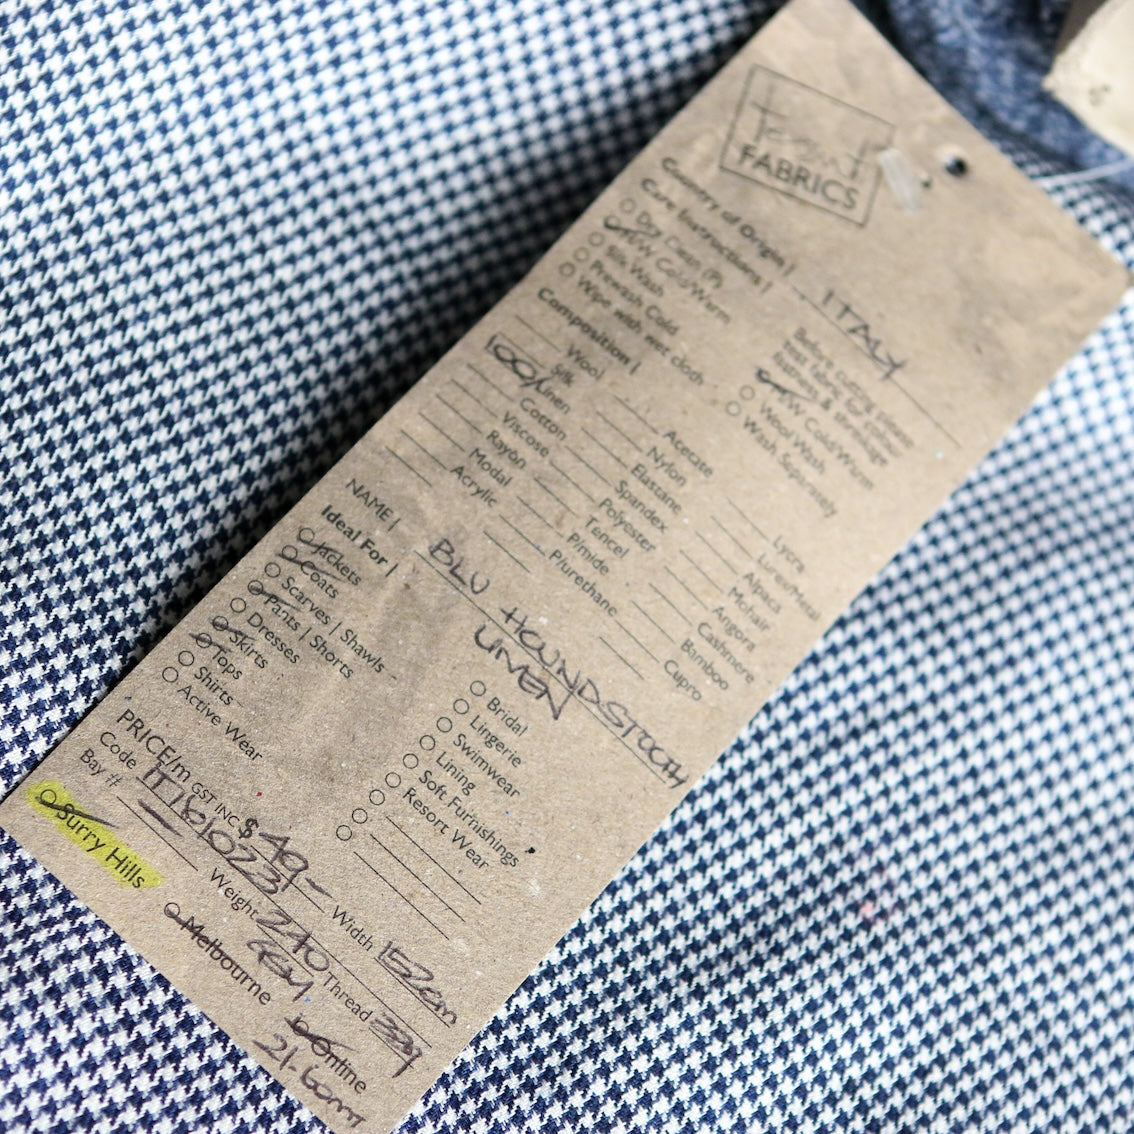 FABRICS
Country of Origin | ITALY
Care Instructions |
Dry Clean (P)
M/W Cold/Warm
Silk Wash
Prewash Cold
Wipe with wet cloth
Before cutting please
test fabric for colour
fastness & shrinkage
M/W Cold/Warm
Wool Wash
Wash Separately
Composition |
Wool
Silk
100% Linen
Cotton
Viscose
Rayon
Modal
Acrylic
Acetate
Nylon
Elastane
Spandex
Polyester
Tencel
P/mide
P/urethane
Lycra
Lurex/Metal
Alpaca
Mohair
Angora
Cashmere
Bamboo
Cupro
NAME | BLU HOUNDSTOOTH
LINEN
Ideal For |
Jackets
Coats
Scarves | Shawls
Pants | Shorts
Dresses
Skirts
Tops
Shirts
Active Wear
Bridal
Lingerie
Swimwear
Lining
Soft Furnishings
Resort Wear
PRICE/m GST INC $ 49- Width 152cm
Code IT161023 Weight 240 Thread
Bay #
Surry Hills Melbourne Online
21.60MT